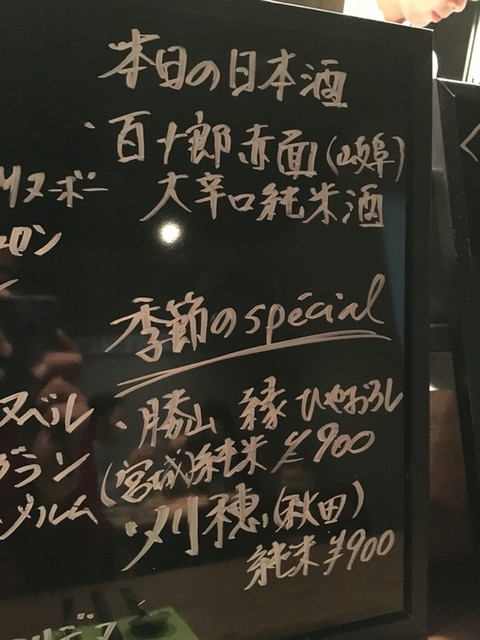 本日の日本酒
・百十郎 赤面(岐阜)
大辛口純米酒
季節のspécial
・勝山 縁 ひやおろし
(宮城)純米 ¥900
・刈穂(秋田)
純米 ¥900
ヌーボー
ロン
ヌベル
グラン
メルム